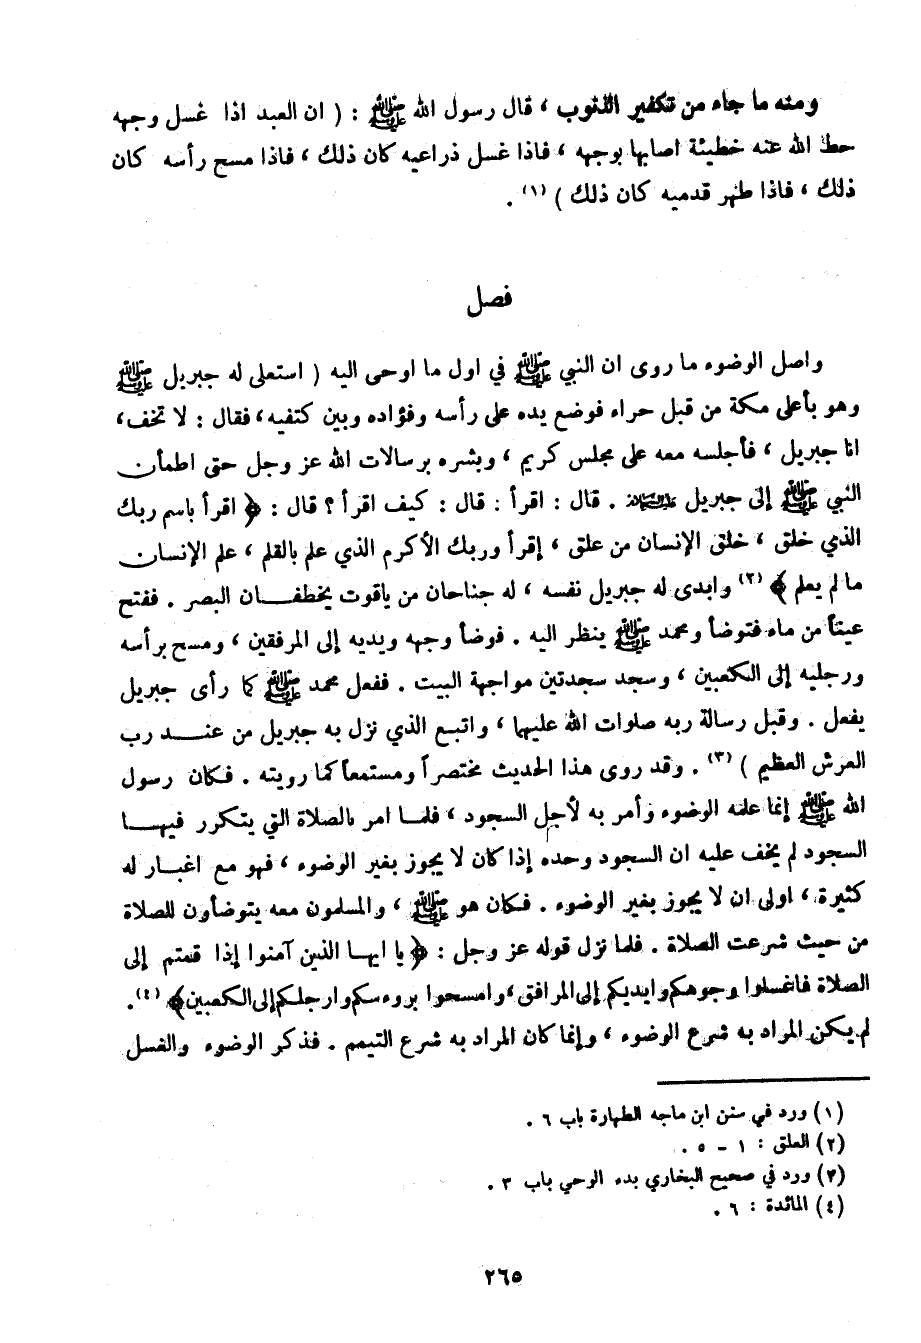 ومنه ما جاء من تكفير الذنوب ، قال رسول الله ﷺ : ( ان العبد اذا غسل وجهه
حط الله عنه خطيئة اصابها بوجهه ، فاذا غسل ذراعيه كان ذلك ، فاذا مسح رأسه كان
ذلك ، فاذا طهر قدميه كان ذلك ) (١) .
فصل
واصل الوضوء ما روى ان النبي ﷺ في اول ما اوحى اليه ( استعلى له جبريل ﷺ
وهو بأعلى مكة من قبل حراء فوضع يده على رأسه وفؤاده وبين كتفيه ، فقال : لا تخف ،
انا جبريل ، فأجلسه معه على مجلس كريم ، وبشره برسالات الله عز وجل حتى اطمأن
النبي ﷺ إلى جبريل عليه السلام . قال : اقرأ : قال : كيف اقرأ ؟ قال : ﴿ اقرأ باسم ربك
الذي خلق ، خلق الإنسان من علق ، إقرأ وربك الأكرم الذي علم بالقلم ، علم الإنسان
ما لم يعلم ﴾ (٢) وابدى له جبريل نفسه ، له جناحان من ياقوت يخطفان البصر . ففتح
عيناً من ماء فتوضأ ومحمد ﷺ ينظر اليه . فوضأ وجهه ويديه إلى المرفقين ، ومسح برأسه
ورجليه إلى الكعبين ، وسجد سجدتين مواجهة البيت . ففعل محمد ﷺ كما رأى جبريل
يفعل . وقبل رسالة ربه صلوات الله عليهما ، واتبع الذي نزل به جبريل من عند رب
العرش العظيم ) (٣) . وقد روى هذا الحديث مختصراً ومستمعاً كما رويته . فكان رسول
الله ﷺ إنما علمه الوضوء وأمر به لأجل السجود ، فلما امر بالصلاة التي يتكرر فيها
السجود لم يخف عليه ان السجود وحده إذا كان لا يجوز بغير الوضوء ، فهو مع اغبار له
كثيرة ، اولى ان لا يجوز بغير الوضوء . فكان هو ﷺ ، والمسلمون معه يتوضأون للصلاة
من حيث شرعت الصلاة . فلما نزل قوله عز وجل : ﴿ يا ايها الذين آمنوا إذا قمتم إلى
الصلاة فاغسلوا وجوهكم وايديكم إلى المرافق ، وامسحوا بروءسكم وارجلكم إلى الكعبين ﴾ (٤) .
لم يكن المراد به شرع الوضوء ، وإنما كان المراد به شرع التيمم . فذكر الوضوء والغسل
(١) ورد في سنن ابن ماجه الطهارة باب ٦ .
(٢) العلق : ١ - ٥ .
(٣) ورد في صحيح البخاري بدء الوحي باب ٣ .
(٤) المائدة : ٦ .
٢٦٥